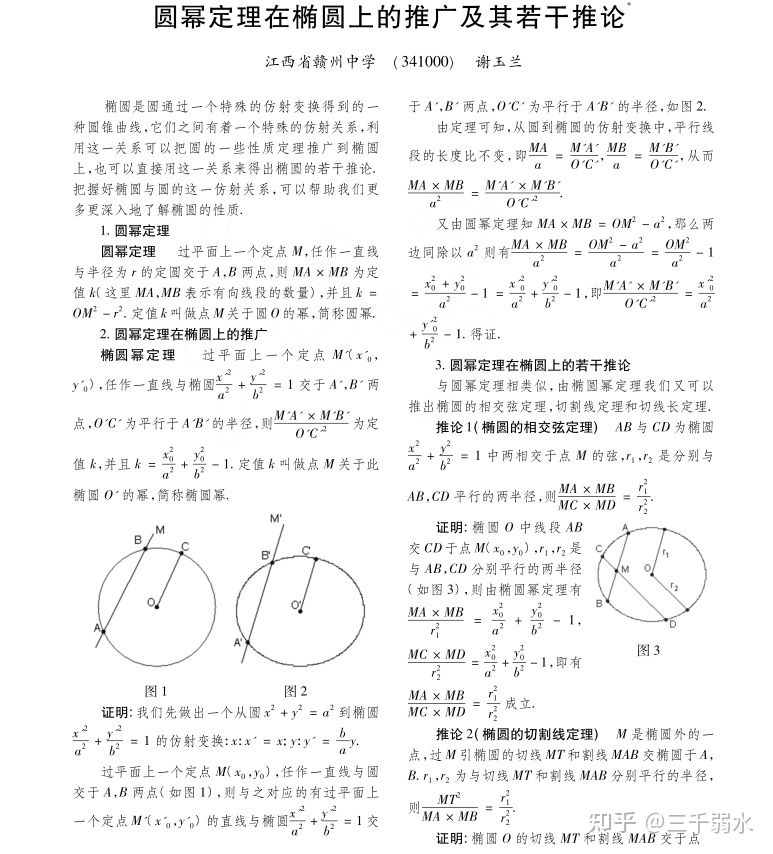 圆幂定理在椭圆上的推广及其若干推论*
江西省赣州中学 (341000) 谢玉兰
椭圆是圆通过一个特殊的仿射变换得到的一
种圆锥曲线,它们之间有着一个特殊的仿射关系,利
用这一关系可以把圆的一些性质定理推广到椭圆
上,也可以直接用这一关系来得出椭圆的若干推论.
把握好椭圆与圆的这一仿射关系,可以帮助我们更
多更深入地了解椭圆的性质.
1. 圆幂定理
圆幂定理 过平面上一个定点 M,任作一直线
与半径为 r 的定圆交于 A,B 两点,则 MA × MB 为定
值 k(这里 MA,MB 表示有向线段的数量),并且 k =
OM² - r². 定值 k 叫做点 M 关于圆 O 的幂,简称圆幂.
2. 圆幂定理在椭圆上的推广
椭圆幂定理 过平面上一个定点 M′(x′₀,
y′₀),任作一直线与椭圆 x′²/a² + y′²/b² = 1 交于 A′,B′ 两
点,O′C′ 为平行于 A′B′ 的半径,则 M′A′ × M′B′/O′C′² 为定
值 k,并且 k = x₀²/a² + y₀²/b² - 1. 定值 k 叫做点 M 关于此
椭圆 O′ 的幂,简称椭圆幂.
M
B
C
O
A
图 1
M'
B'
C'
O'
A'
图 2
证明: 我们先做出一个从圆 x² + y² = a² 到椭圆
x′²/a² + y′²/b² = 1 的仿射变换: x: x′ = x; y: y′ = b/a y.
过平面上一个定点 M(x₀,y₀),任作一直线与圆
交于 A,B 两点(如图 1),则与之对应的有过平面上
一个定点 M′(x′₀,y′₀) 的直线与椭圆 x′²/a² + y′²/b² = 1 交
于 A′,B′ 两点,O′C′ 为平行于 A′B′ 的半径,如图 2.
由定理可知,从圆到椭圆的仿射变换中,平行线
段的长度比不变,即 MA/a = M′A′/O′C′, MB/a = M′B′/O′C′,从而
MA × MB/a² = M′A′ × M′B′/O′C′².
又由圆幂定理知 MA × MB = OM² - a²,那么两
边同除以 a² 则有 MA × MB/a² = OM² - a²/a² = OM²/a² - 1
= x₀² + y₀²/a² - 1 = x′₀²/a² + y′₀²/b² - 1,即 M′A′ × M′B′/O′C′² = x′₀²/a²
+ y′₀²/b² - 1. 得证.
3. 圆幂定理在椭圆上的若干推论
与圆幂定理相类似,由椭圆幂定理我们又可以
推出椭圆的相交弦定理,切割线定理和切线长定理.
推论 1(椭圆的相交弦定理) AB 与 CD 为椭圆
x²/a² + y²/b² = 1 中两相交于点 M 的弦,r₁,r₂ 是分别与
AB,CD 平行的两半径,则 MA × MB/MC × MD = r₁²/r₂².
证明: 椭圆 O 中线段 AB
交 CD 于点 M(x₀,y₀),r₁,r₂ 是
与 AB,CD 分别平行的两半径
(如图 3),则由椭圆幂定理有
MA × MB/r₁² = x₀²/a² + y₀²/b² - 1,
MC × MD/r₂² = x₀²/a² + y₀²/b² - 1,即有
MA × MB/MC × MD = r₁²/r₂² 成立.
A
C
r₁
M
O
r₂
B
D
图 3
推论 2(椭圆的切割线定理) M 是椭圆外的一
点,过 M 引椭圆的切线 MT 和割线 MAB 交椭圆于 A,
B. r₁,r₂ 为与切线 MT 和割线 MAB 分别平行的半径,
则 MT²/MA × MB = r₁²/r₂².
证明: 椭圆 O 的切线 MT 和割线 MAB 交于点
知乎 @三千弱水